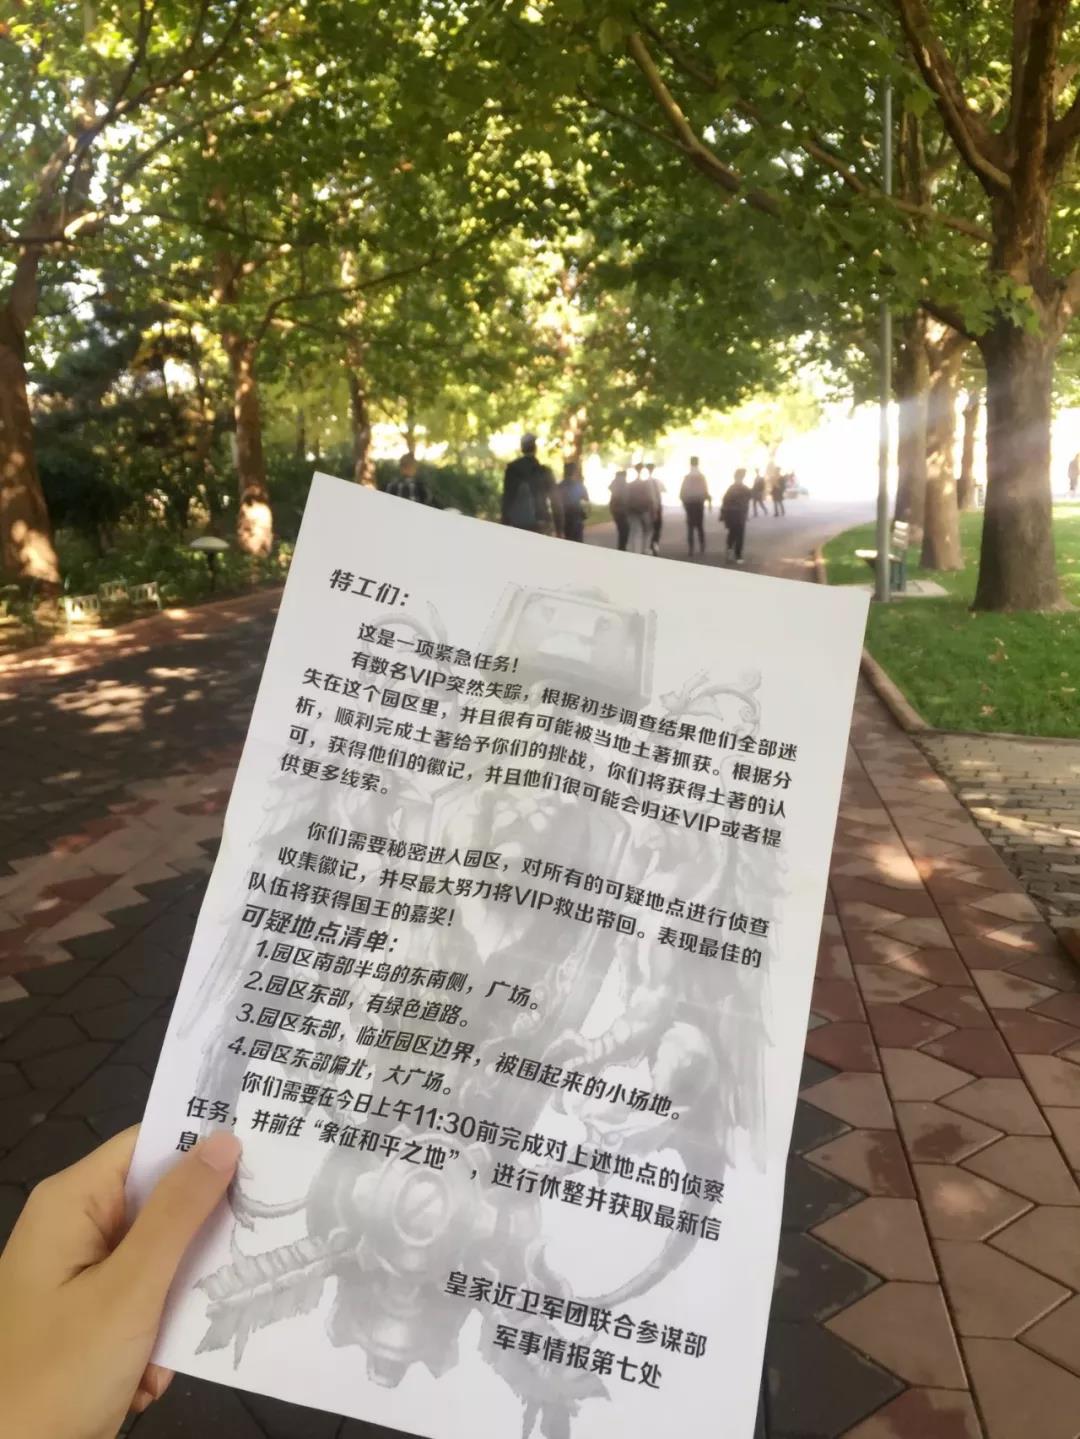 特工们：
这是一项紧急任务！
有数名VIP突然失踪，根据初步调查结果他们全部迷
失在这个园区里，并且很有可能被当地土著抓获。根据分
析，顺利完成土著给予你们的挑战，你们将获得土著的认
可，获得他们的徽记，并且他们很可能会归还VIP或者提
供更多线索。
你们需要秘密进入园区，对所有的可疑地点进行侦查
收集徽记，并尽最大努力将VIP救出带回。表现最佳的
队伍将获得国王的嘉奖！
可疑地点清单：
1.园区南部半岛的东南侧，广场。
2.园区东部，有绿色道路。
3.园区东部，临近园区边界，被围起来的小场地。
4.园区东部偏北，大广场。
你们需要在今日上午11:30前完成对上述地点的侦察
任务，并前往“象征和平之地”，进行休整并获取最新信
息
皇家近卫军团联合参谋部
军事情报第七处